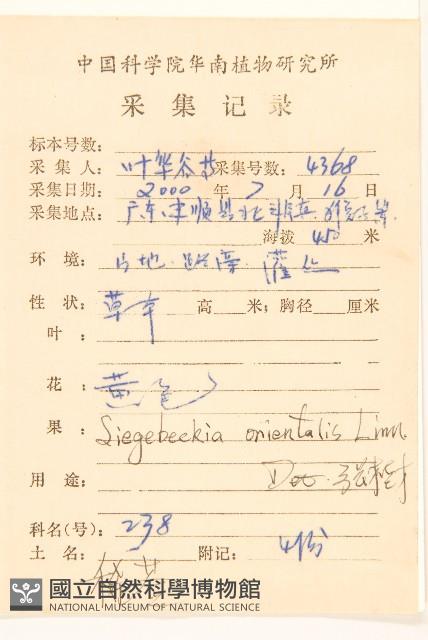 中国科学院华南植物研究所
采集记录
标本号数：
采集人：叶华谷等 采集号数：4368
采集日期：2000年7月16日
采集地点：广东
海拔 450 米
环境：山地·路旁 灌丛
性状：草本 高 米；胸径 厘米
叶：
花：黄色
果：Siegesbeckia orientalis Linn.
用途： Det.
科名（号）：238
土名： 附记：4份
國立自然科學博物館
NATIONAL MUSEUM OF NATURAL SCIENCE